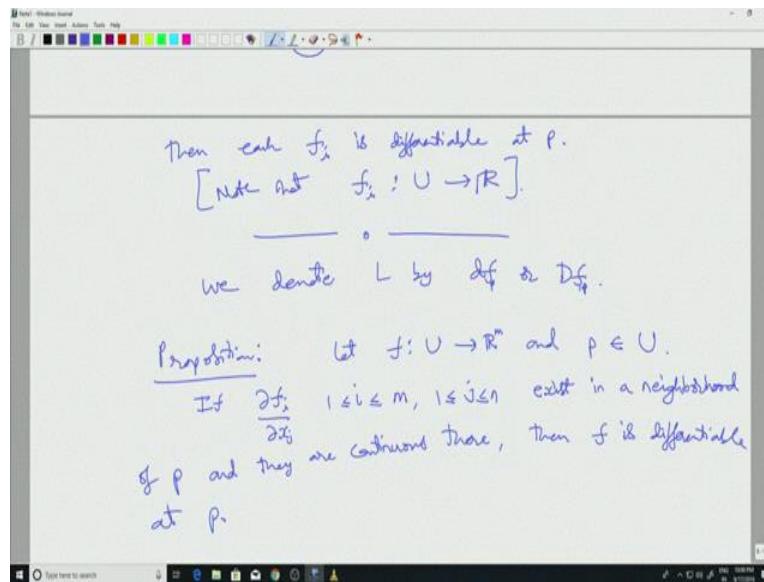 Note1 - Windows Journal
File Edit View Insert Actions Tools Help
Then each fᵢ is differentiable at p.
[Note that fᵢ : U → ℝ].
We denote L by df_p or Df_p.
Proposition: Let f: U → ℝᵐ and p ∈ U.
If ∂fᵢ/∂xⱼ 1 ≤ i ≤ m, 1 ≤ j ≤ n exist in a neighborhood
of p and they are continuous there, then f is differentiable
at p.
Type here to search